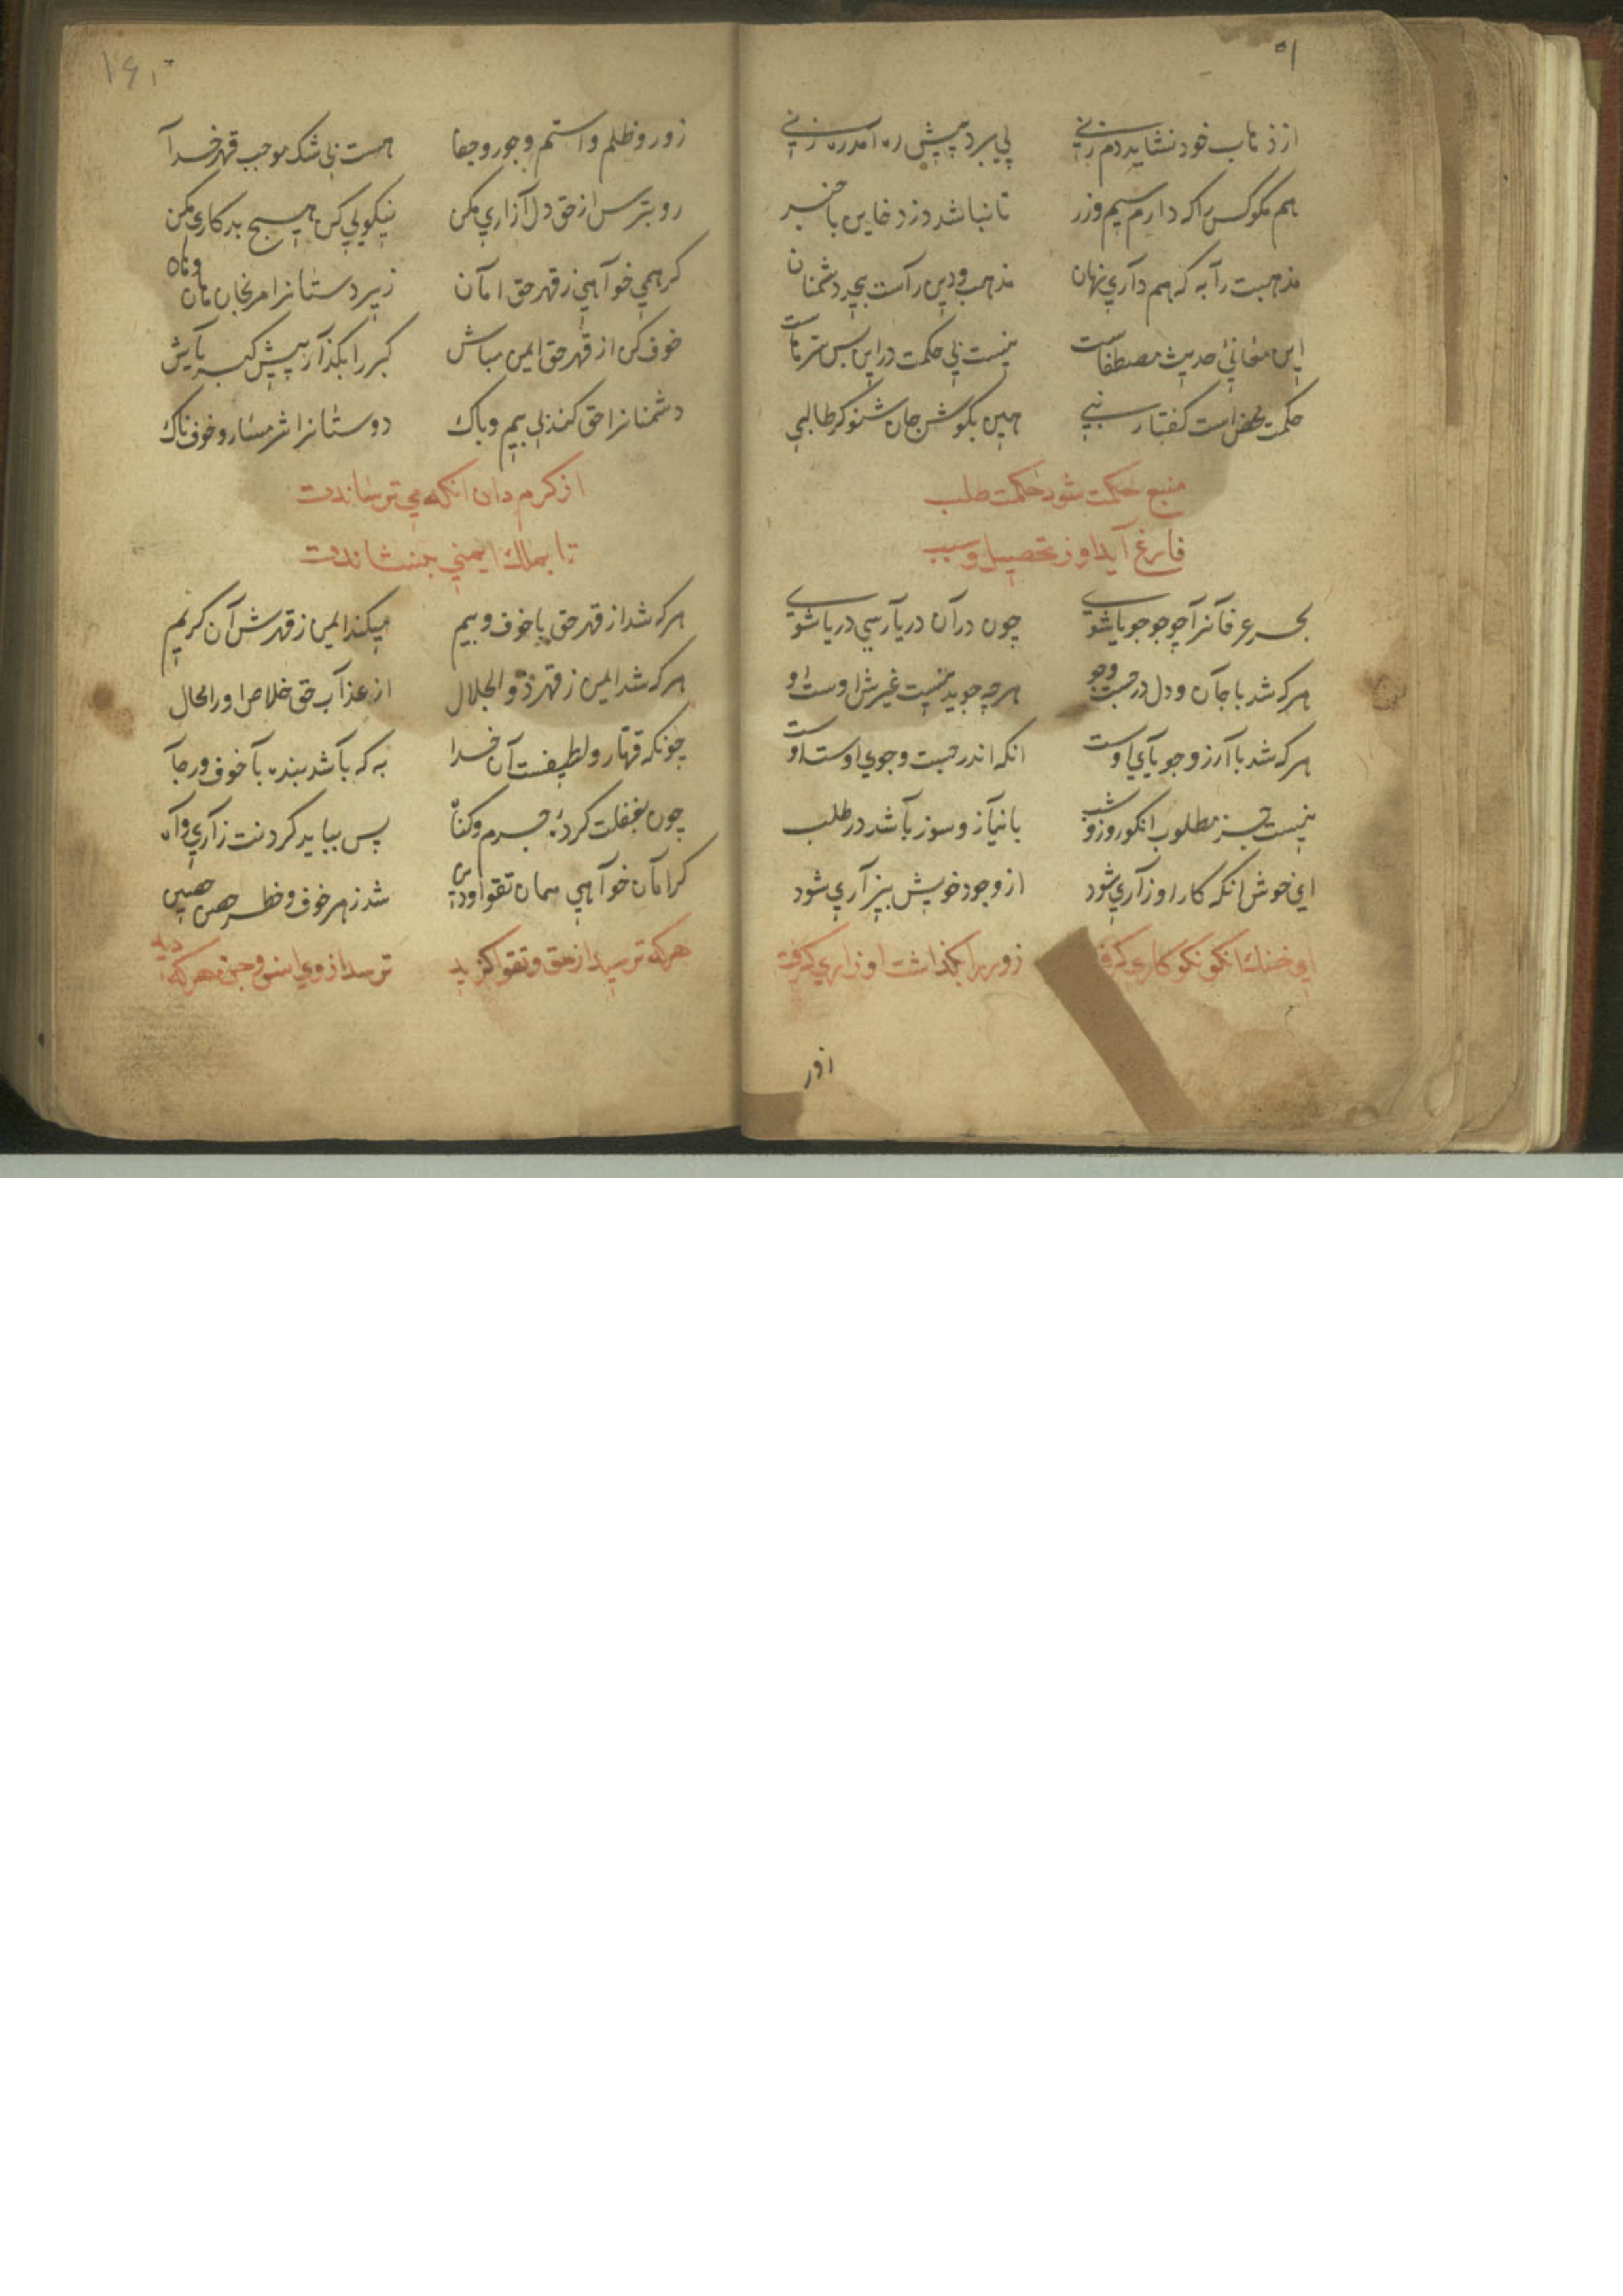 ۵۱
از ذهاب خود نشاید دم زنی پی برد پیش ره آمد ره زنی
هم مکو کس را که دارم سیم وزر تا نباشد دزد خاین با خبر
مذهبت را به که هم داری نهان مذهب ودین رآست بیحد دشمنان
این معانی حدیث مصطفاست نیست بی حکمت دراین بس سترهاست
حکمت محض است کفتار نبی هین بکوش جان شنو کر طالبی
منبع حکمت شود حکمت طلب
فارغ آید او ز تحصیل و سبب
بحر عرفانرا چو جو جویا شوی چون در آن دریا رسی دریا شوی
هرکه شد با جان و دل در جست وجو هرچه جوید نیست غیرش اوست او
هرکه شد با آرزو جویآی اوست انکه اندر جست وجوی اوست اوست
نیست جز مطلوب انکو روز وشب با نیآز و سوز بآشد در طلب
ای خوش انکه کار او زآری شود از وجود خویش بیزآری شود
ای خنک انکو نکو کاری کرفت زور را بکذاشت او زاری کرفت
اذر
۱۶۰
زور و ظلم و استم وجور وجفا هست بی شک موجب قهر خدآ
رو بترس از حق دل آزاری مکن نیکویی کن هیچ بد کاری مکن
کر همی خوآهی ز قهر حق امآن زیر دستانرا مرنجان هان وهان
خوف کن از قهر حق ایمن مباش کبر را بکذآر پیش کبریآش
دشمنانرا حق کند بی بیم وباک دوستانرا شرمسار و خوف ناک
از کرم دان انکه می ترساندت
تا بملک ایمنی بنشاندت
هرکه شد از قهر حق با خوف و بیم میکند ایمن ز قهرش آن کریم
هرکه شد ایمن ز قهر ذو الجلال از عذآب حق خلاص اورا محال
چونکه قهار و لطیفست آن خدا به که بآشد بنده بآ خوف ورجآ
چون بغفلت کردۀ جرم وکناه پس بباید کردنت زآری وآه
کر امآن خوآهی همان تقوا و دین شد ز هر خوف و خطر حصن حصین
هرکه ترسید از حق و تقوا کزید ترسد از وی انس وجن و هرکه دید